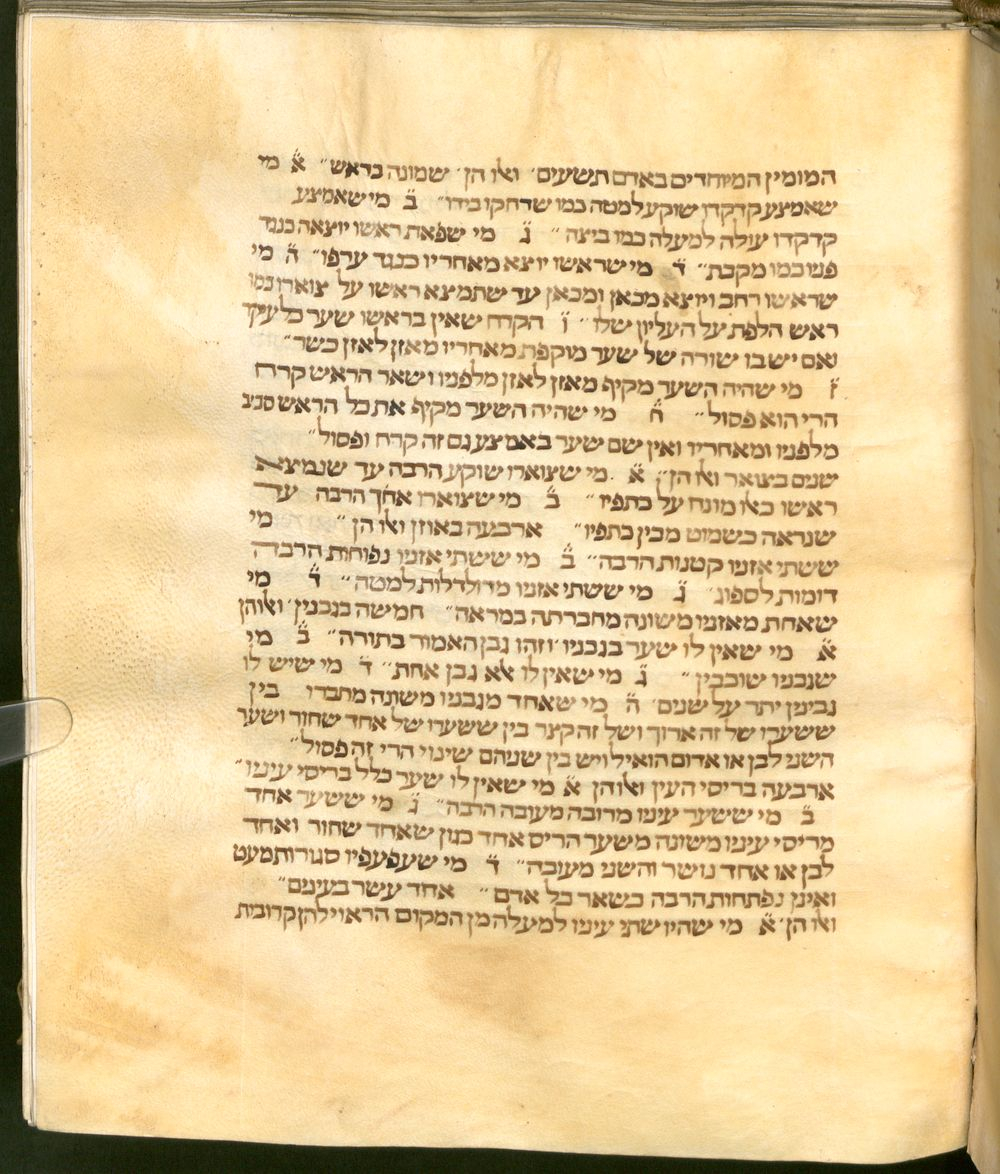 המומין המיוחדים באדם תשעים׳ ואלו הן׳ שמונה בראש״ א̈ מי
שאמצע קדקדו שוקע למטה כמו שדחקו בידו״ ב̈ מי שאמצע
קדקדו עולה למעלה כמו ביצה״ ג̈ מי שפאת ראשו יוצאה כנגד
פניו כמו מקבת״ ד̈ מי שראשו יוצא מאחריו כנגד ערפו״ ה̈ מי
שראשו רחב ויוצא מכאן ומכאן עד שתמצא ראשו על צוארו כמו
ראש הלפת על העליון שלו״ ו̈ הקרח שאין בראשו שער כל עיקר
ואם יש בו שורה של שער מוקפת מאחריו מאזן לאזן כשר״
ז̈ מי שהיה השער מקיף מאזן לאזן מלפניו ושאר הראש קרח
הרי הוא פסול״ ח̈ מי שהיה השער מקיף את כל הראש סביב
מלפניו ומאחריו ואין שם שער באמצע גם זה קרח ופסול״
שנים בצואר ואלו הן״ א̈ מי שצוארו שוקע הרבה עד שנמצא
ראשו כאלו מונח על כתפיו״ ב̈ מי שצוארו ארוך הרבה עד
שנראה כשמוט מבין כתפיו״ ארבעה באוזן ואלו הן״ מי
ששתי אזניו קטנות הרבה״ ב̈ מי ששתי אזניו נפוחות הרבה
דומות לספוג׳ ג̈ מי ששתי אזניו מדולדלות למטה״ ד̈ מי
שאחת מאזניו משונה מחברתה במראה״ חמישה בגבנין׳ ואלו הן
א̈ מי שאין לו שער בגבניו׳ וזהו גבן האמור בתורה״ ב̈ מי
שגבניו שוכבין״ ג̈ מי שאין לו אלא גבן אחת״ ד̈ מי שיש לו
גבינין יתר על שנים׳ ה̈ מי שאחד מגבניו משונה מחברו בין
ששערו של זה ארוך ושל זה קצר בין ששערו של אחד שחור ושער
השני לבן או אדום הואיל ויש בין שניהם שינוי הרי זה פסול״
ארבעה בריסי העין ואלו הן א̈ מי שאין לו שער כלל בריסי עיניו״
ב̈ מי ששער עיניו מרובה מעובה הרבה״ ג̈ מי ששער אחד
מריסי עיניו משונה משער הריס אחד כגון שאחד שחור ואחד
לבן או אחד נושר והשני מעובה״ ד̈ מי שעפעפיו סגורות מעט
ואינן נפתחות הרבה כשאר כל אדם״ אחד עשר בעינים״
ואלו הן׳ א̈ מי שהיו שתי עיניו למעלה מן המקום הראוי להן קרובות